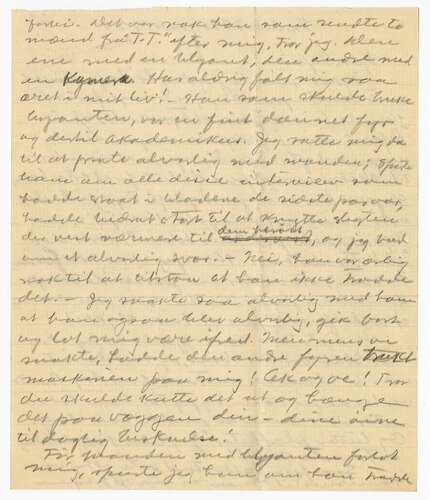 forbi. Det var nok han som sendte to
mænd fra "T.T." efter mig, tror jeg. Den
ene med en blyant, den andre med
en Kamera. Har aldrig følt mig saa
æret i mit liv! - Han som skulde bruke
blyanten, var en fint dannet fyr
og dertil akademiker. Jeg satte mig da
til at prate alvorlig med manden; spurte
ham om alle disse interview som
hadde staat i bladene de sidste par aar,
hadde bidrat stort til at knytte slegten
der vest nærmere til dem herover, og jeg bad
om et alvorlig svar. - Nei, han var ærlig
nok til at tilstaa at han ikke trodde
det. - Jeg snakte saa alvorlig med ham
at han ogsaa blev alvorlig, gik bort
og lot mig være i fred. Men mens vi
snakte, hadde den andre fyren trukket
maskinen paa mig! Ak og ve! Tror
du skulde kutte det ut og hænge
det paa væggen din - dine
til daglig beskuelse!
Før manden med blyanten forlot
mig, spurte jeg ham om han trodde